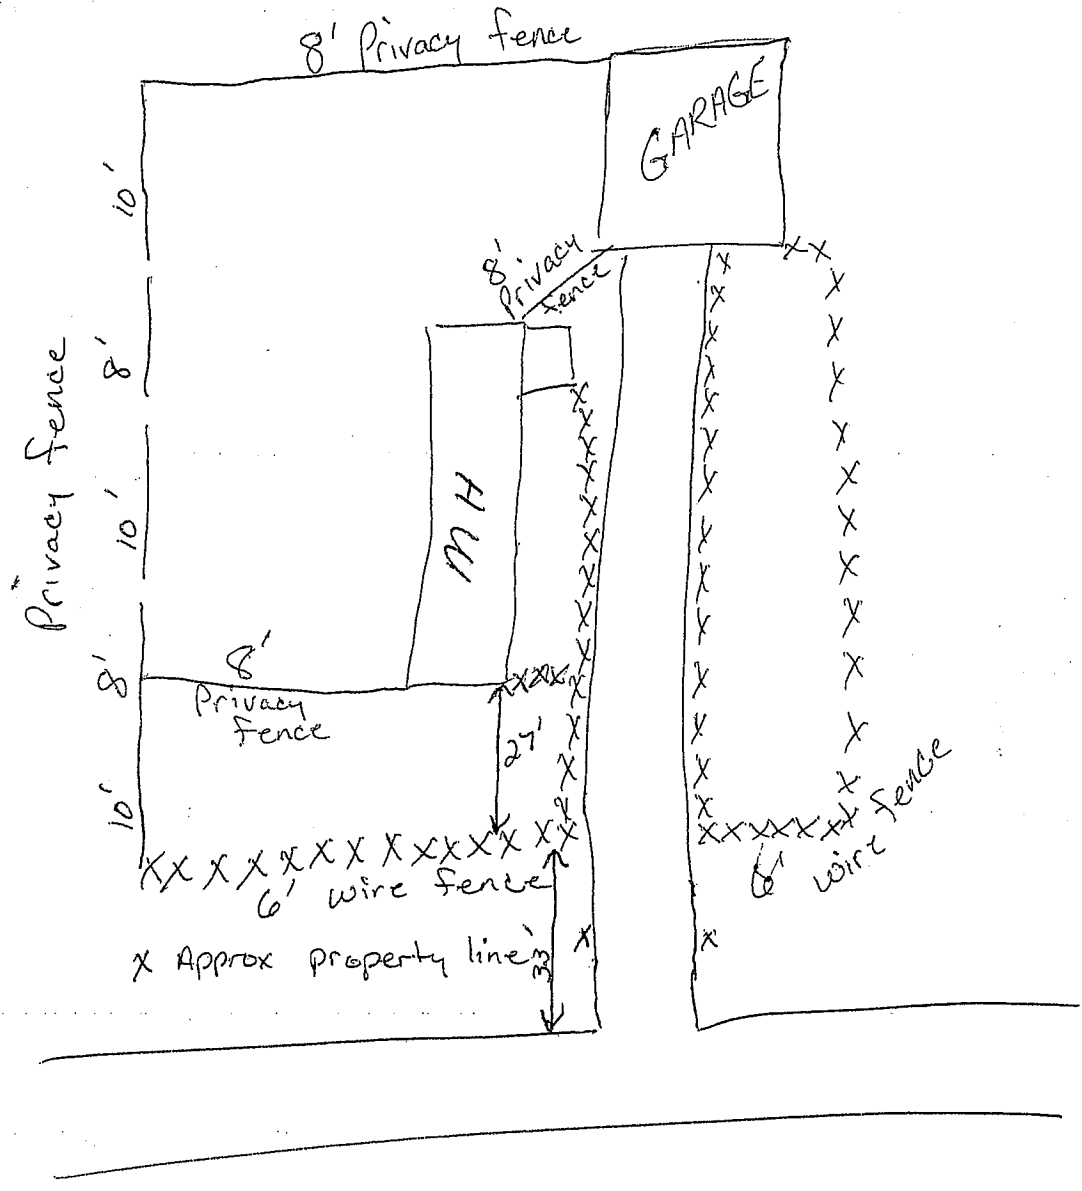 8' Privacy fence
GARAGE
10'
8'
Privacy
fence
8'
Privacy fence
10'
MH
8'
8'
Privacy
fence
27'
10'
6' wire fence
6' wire fence
X Approx property line
33'